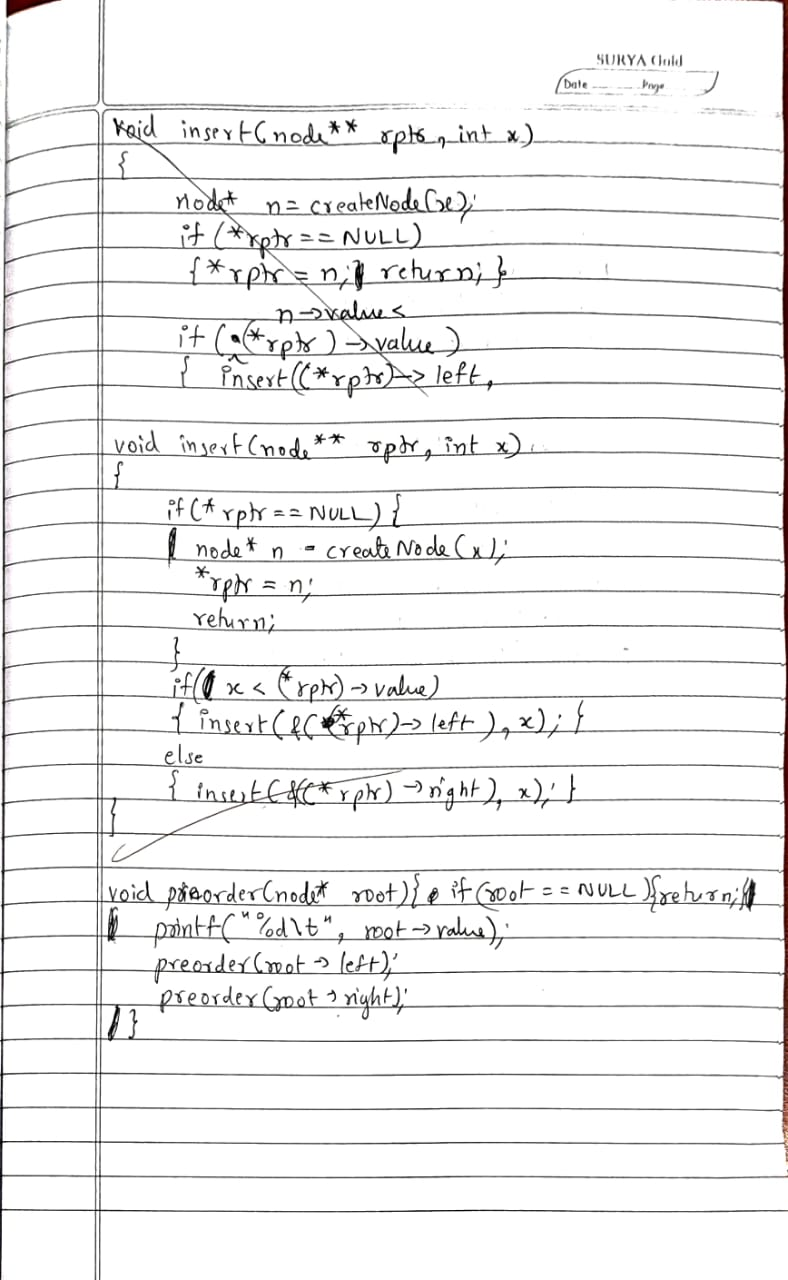 SURYA Gold
Date Page
void insert(node** rptr, int x)
{
node* n = createNode(x);
if (*rptr == NULL)
{ *rptr = n; return; }
n→value <
if ((*rptr)→value)
{ insert((*rptr)→left,
void insert(node** rptr, int x)
{
if(*rptr == NULL) {
node* n = createNode(x);
*rptr = n;
return;
}
if( x < (*rptr)→value)
{ insert(&((*rptr)→left), x); }
else
{ insert(&((*rptr)→right), x); }
}
void preorder(node* root){ if(root == NULL){return;
printf("%d\t", root→value);
preorder(root→left);
preorder(root→right);
}